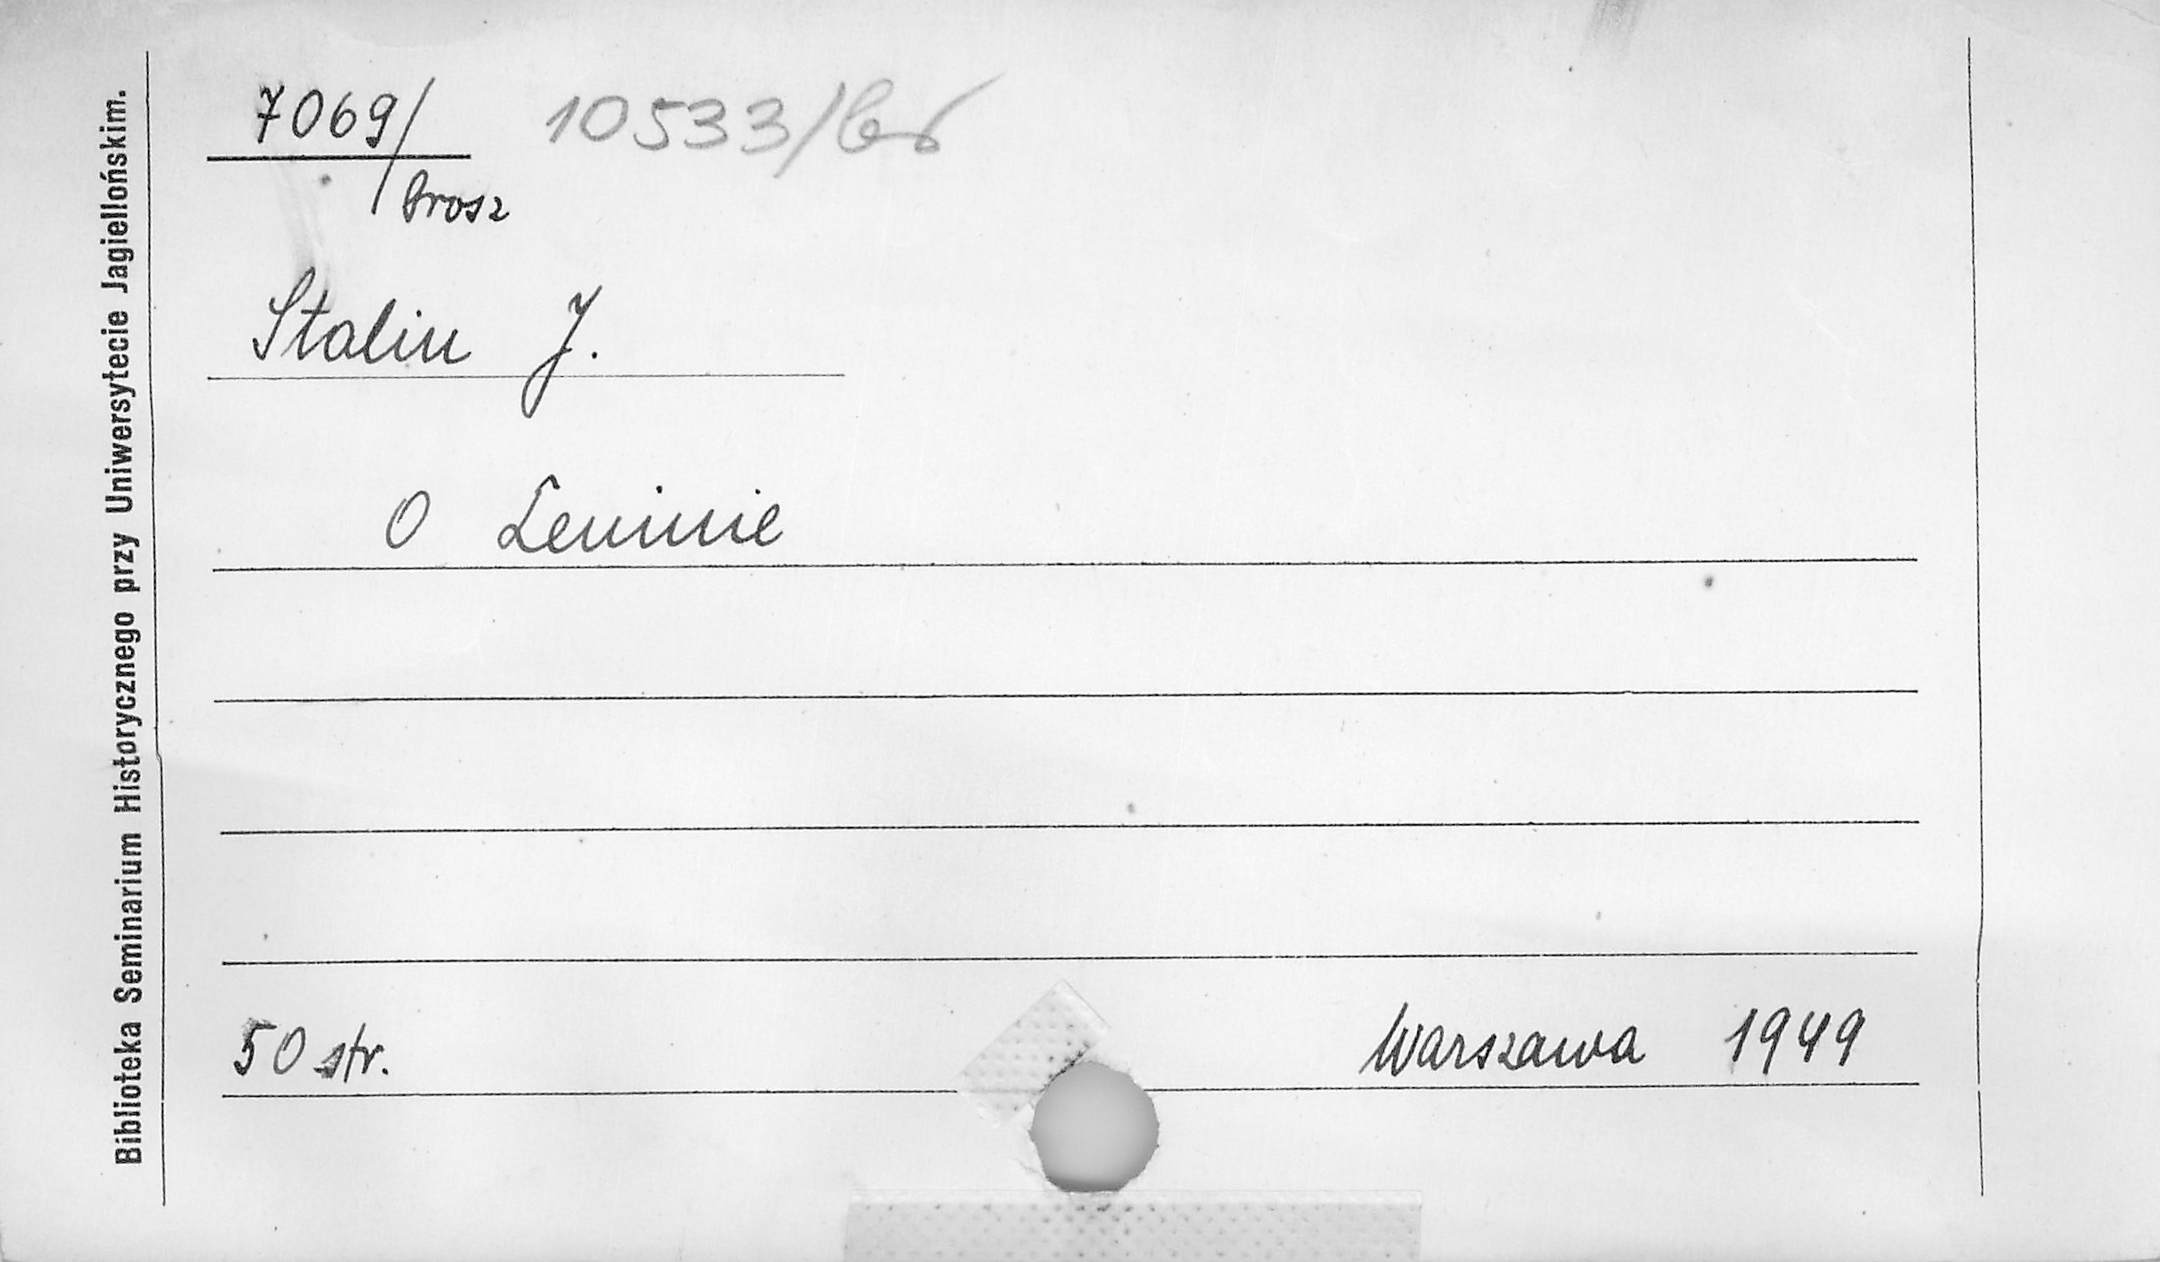 Biblioteka Seminarium Historycznego przy Uniwersytecie Jagiellońskim.
7069/ 10533/br
brosz
Stalin J.
O Leninie
50 str. Warszawa 1949